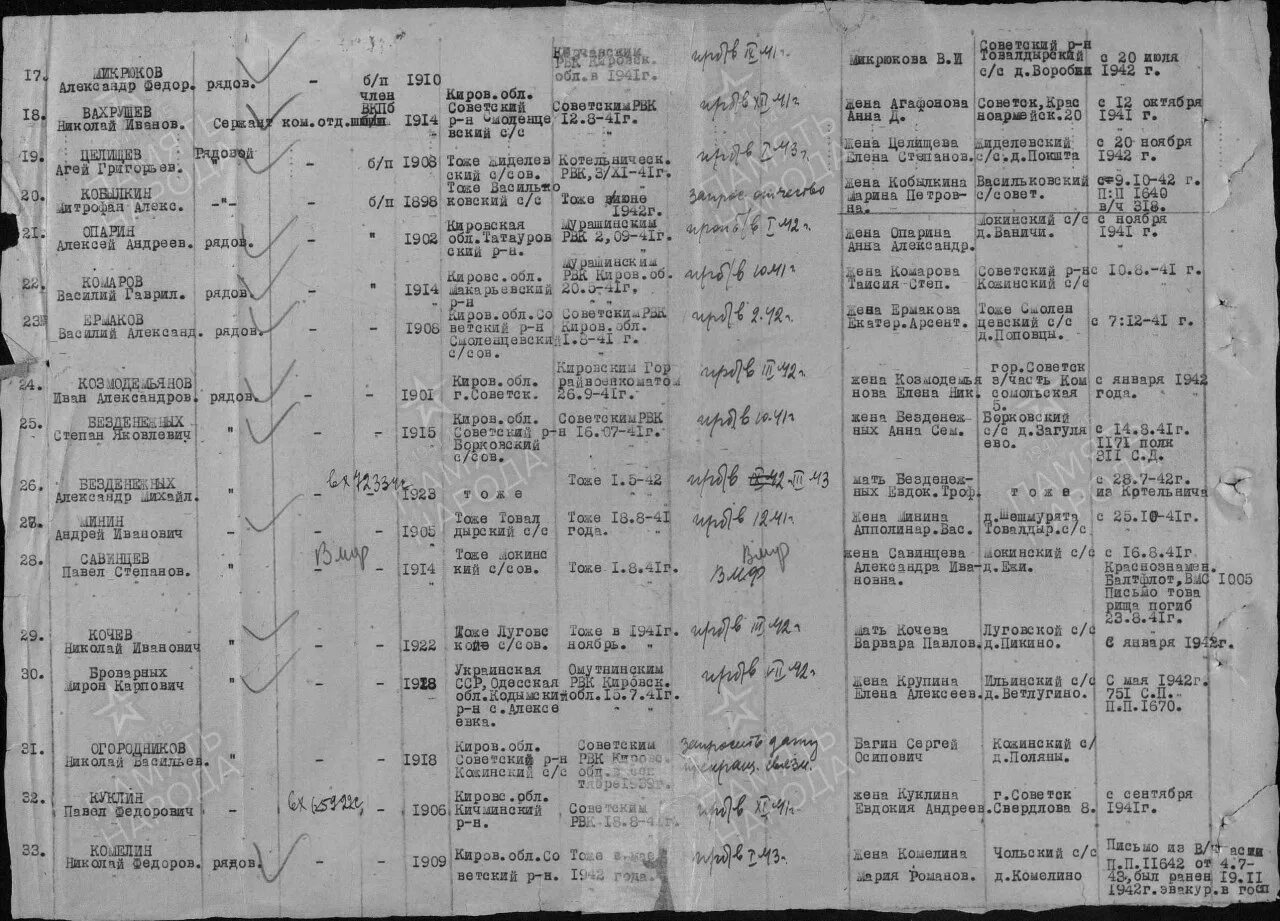 17. МИКРЮКОВ Александр Федор. рядов. - б/п 1910 РВК Кировс. обл. в 1941г. Микрюкова В.И Советский р-н Товалдырский с/с д.Воробии с 20 июля 1942 г.
18. ВАХРУШЕВ Николай Иванов. Сержант ком.отд. член ВКПб 1914 Киров.обл. Советский р-н Смоленце вский с/с Советским РВК 12.8-41г. жена Агафонова Анна Д. Советск,Крас ноармейск.20 с 12 октября 1941 г.
19. ЦЕЛИЩЕВ Агей Григорьев. Рядовой - б/п 1908 Тоже Жиделев ский с/сов. Котельническ. РВК,3/XI-41г. проп/в I 43г. Жена Целищева Елена Степанов. Жиделевский с/с.д.Поишта с 20 ноября 1942 г.
20. КОБЫЛКИН Митрофан Алекс. -"- - б/п 1898 Тоже Василько ковский с/с Тоже июне 1942г. Запрос. отчество Жена Кобылкина Марина Петров- на. Васильковский с/совет. с 9.10-42 г. П:П 1640 в/ч 318.
21. ОПАРИН Алексей Андреев. рядов. - " 1902 Кировская обл.Татауров ский р-н. Мурашинским РВК 2,09-41г. проп/в I 42г. жена Опарина Анна Александр. Мокинский с/с д.Ваничи. с ноября 1941 г.
22. КОМАРОВ Василий Гаврил. рядов. - " 1914 Кировс.обл. Макарьевский р-н Мурашинским РВК Киров.об. 20.5-41г. пр/в 10.41г. Жена Комарова Таисия Степ. Советский р-н Кожинский с/с с 10.8.-41 г.
23 ЕРМАКОВ Василий Александ. рядов. - - 1908 Киров.обл.Со ветский р-н Смоленцевский с/сов. Советским РВК Киров.обл. 1.8-41 г. пр/в 2.42г. Жена Ермакова Екатер.Арсент. Тоже Смолен цевский с/с д.Поповцы. с 7:12-41 г.
24. КОЗМОДЕМЬЯНОВ Иван Александров. рядов. - - 1901 Киров.обл. г.Советск. Кировским Гор райвоенкоматом 26.9-41г. пр/в III 42г. жена Козмодемья нова Елена Ник. гор.Советск з/часть Ком сомольская 5. с января 1942 года.
25. БЕЗДЕНЕЖНЫХ Степан Яковлевич " - - 1915 Киров.обл. Советский р-н Борковский с/сов. Советским РВК 16.07-41г. пр/в 10.41г жена Безденеж- ных Анна Сем. Борковский с/с д.Загуля ево. с 14.8.41г. 1171 полк 311 С.Д.
26. БЕЗДЕНЕЖНЫХ Александр Михайл. " - 1923 тоже Тоже 1.5-42 пр/в III 43 мать Безденеж- ных Евдок.Троф. тоже с 28.7-42г. из Котельнича
27. МИНИН Андрей Иванович " - - 1905 Тоже Товал дырский с/с Тоже 18.8-41 года. пр/в 12.41г. Жена Минина Апполинар.Вас. д.Шешмурята Товалдыр.с/с с 25.10-41г.
28. САВИНЦЕВ Павел Степанов. " ВМФ - 1914 Тоже Мокинс кий с/сов. Тоже 1.8.41г. ВМФ жена Савинцева Александра Ива- новна. Мокинский с/с д.Ежи. с 16.8.41г Краснознамен. Балтфлот,ВМС 1005 Письмо това рища погиб 23.8.41г.
29. КОЧЕВ Николай Иванович " - - 1922 Тоже Луговс кой с/сов. Тоже в 1941г. ноябрь. пр/в III 42г. Мать Кочева Варвара Павлов. Луговской с/с д.Пикино. с января 1942г.
30. Броварных Мирон Карпович " - - 1918 Украинская ССР,Одесская обл.Кодымский р-н с.Алексе евка. Омутнинским РВК Кировск. обл.15.7.41г. Жена Крупина Елена Алексеев. Ильинский с/с д.Ветлугино. С мая 1942г. 751 С.П. П.П.1670.
31. ОГОРОДНИКОВ Николай Васильев. " - - 1918 Киров.обл. Советский р-н Кожинский с/с Советским РВК Кировс. Запросить дату прекращ. связи. Вагин Сергей Осипович Кожинский с/с д.Поляны.
32. КУКЛИН Павел Федорович - - 1906 Кировс.обл. Кичминский р-н. Советским РВК 18.8-41г пр/в XI 41г. жена Куклина Евдокия Андреев. г.Советск Свердлова 8. с сентября 1941г.
33. КОМЕЛИН Николай Федоров. рядов. - - 1909 Киров.обл.Со ветский р-н. Тоже в мае 1942 года. пр/в I 43г. Жена Комелина Мария Романов. Чольский с/с д.Комелино Письмо из В/Ч П.П.11642 от 4.7- 43,был ранен 19.11 1942г.эвакур.в госп
ПАМЯТЬ НАРОДА